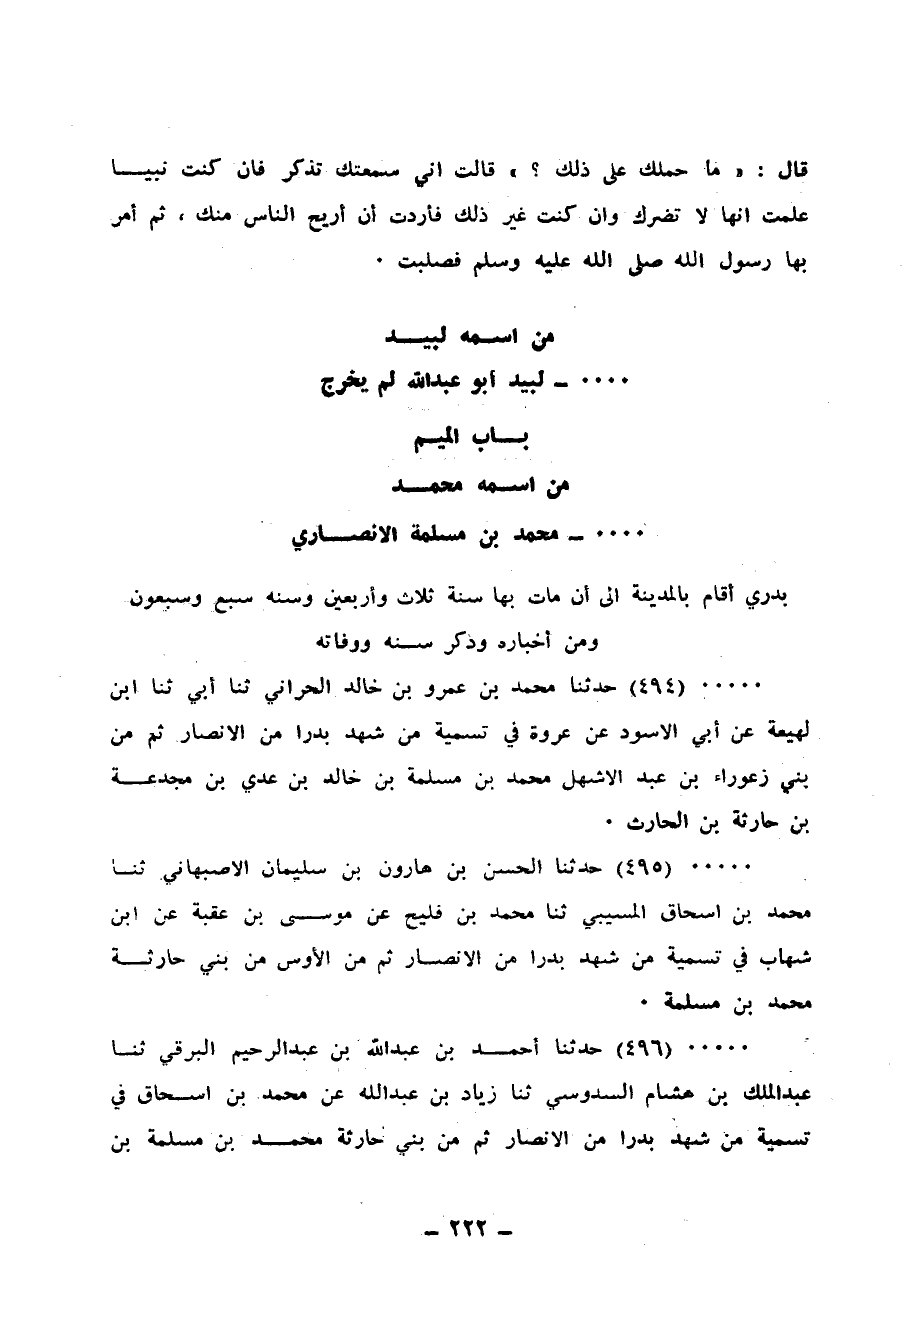 قال : « ما حملك على ذلك ؟ » قالت اني سمعتك تذكر فان كنت نبيـــا
علمت انها لا تضرك وان كنت غير ذلك فأردت أن أريح الناس منك ، ثم أمر
بها رسول الله صلى الله عليه وسلم فصلبت ٠
من اسـمه لبيـــد
٠٠٠٠ ـ لبيد أبو عبدالله لم يخرج
بـــاب الميـم
من اسـمه محمـــد
٠٠٠٠ ـ محمد بن مسلمة الانصـــاري
بدري أقام بالمدينة الى أن مات بها سنة ثلاث وأربعين وسنه سبع وسبعون
ومن أخباره وذكر ســنه ووفاته
٠٠٠٠٠ (٤٩٤) حدثنا محمد بن عمرو بن خالد الحراني ثنا أبي ثنا ابن
لهيعة عن أبي الاسود عن عروة في تسمية من شهد بدرا من الانصار ثم من
بني زعوراء بن عبد الاشهل محمد بن مسلمة بن خالد بن عدي بن مجدعـــة
بن حارثة بن الحارث ٠
٠٠٠٠٠ (٤٩٥) حدثنا الحسن بن هارون بن سليمان الاصبهاني ثنـــا
محمد بن اسحاق المسيبي ثنا محمد بن فليح عن موســـى بن عقبة عن ابن
شهاب في تسمية من شهد بدرا من الانصـــار ثم من الأوس من بني حارثـــة
محمد بن مسلمة ٠
٠٠٠٠٠ (٤٩٦) حدثنا أحمـــد بن عبدالله بن عبدالرحيم البرقي ثنـــا
عبدالملك بن هشام السدوسي ثنا زياد بن عبدالله عن محمد بن اســحاق في
تسمية من شهد بدرا من الانصار ثم من بني حارثة محمـــد بن مسلمة بن
ـ ٢٢٢ ـ